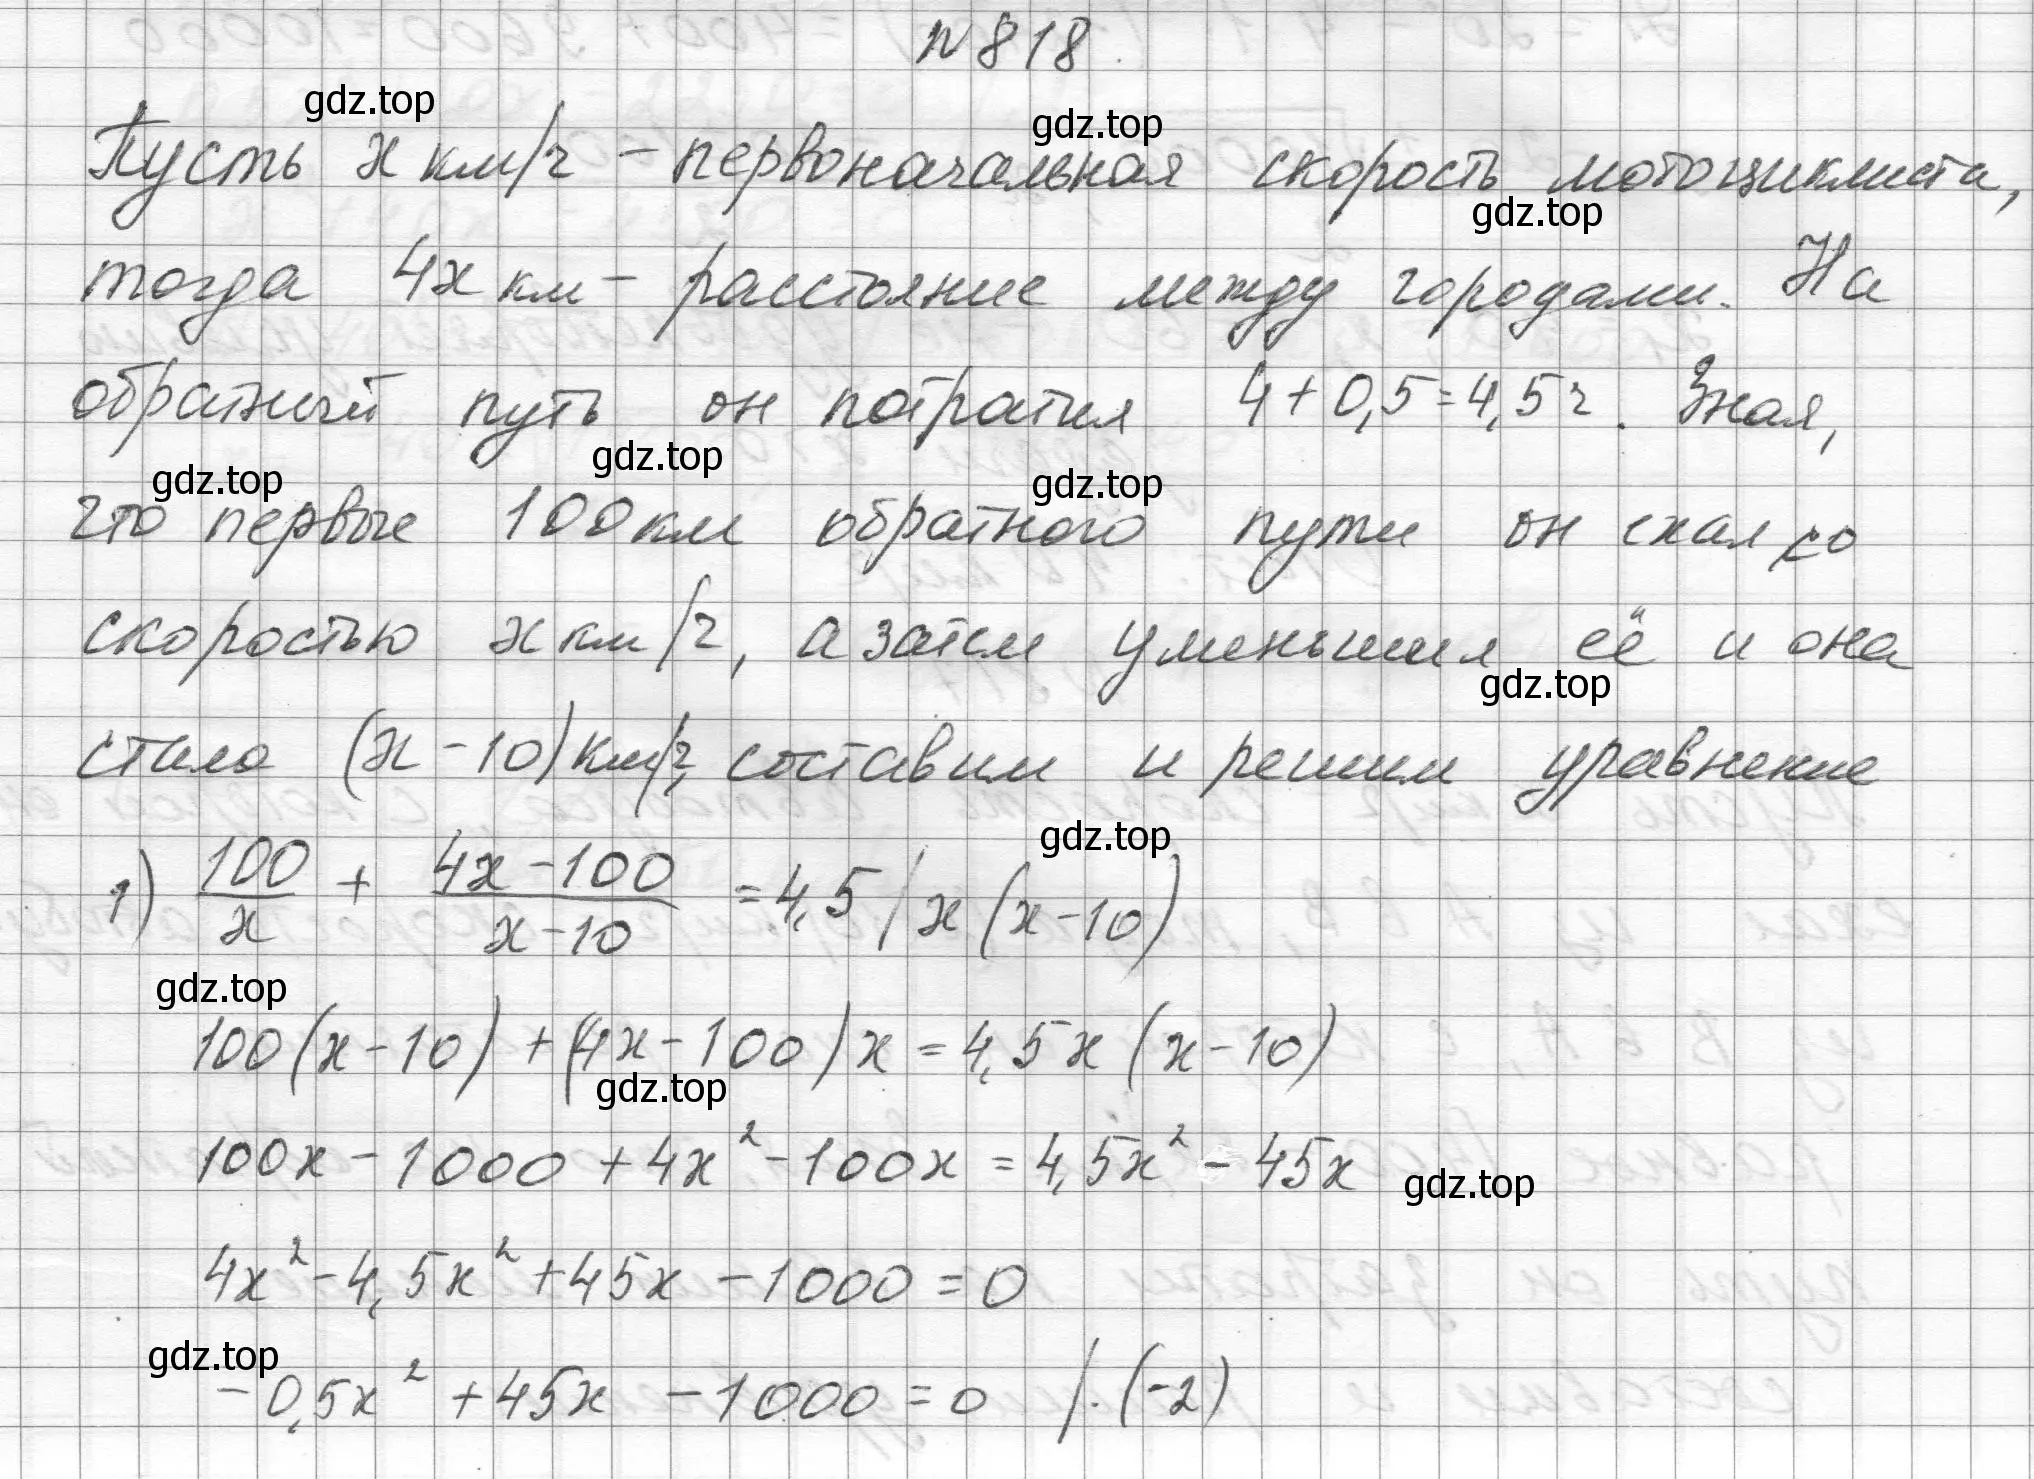 №818.
gdz.top
gdz.top
Пусть x км/ч – первоначальная скорость мотоциклиста,
gdz.top
тогда 4x км – расстояние между городами. На
обратный путь он потратил 4+0,5=4,5ч. Зная,
gdz.top gdz.top gdz.top
что первые 100км обратного пути он ехал со
скоростью x км/ч, а затем уменьшил её и она
gdz.top
стала (x-10)км/ч, составим и решим уравнение
gdz.top
1) 100/x + (4x-100)/(x-10) = 4,5 / x(x-10)
gdz.top
100(x-10)+(4x-100)x=4,5x(x-10)
gdz.top
100x-1000+4x²-100x=4,5x²-45x
gdz.top
4x²-4,5x²+45x-1000=0
gdz.top
-0,5x²+45x-1000=0 /·(-2)